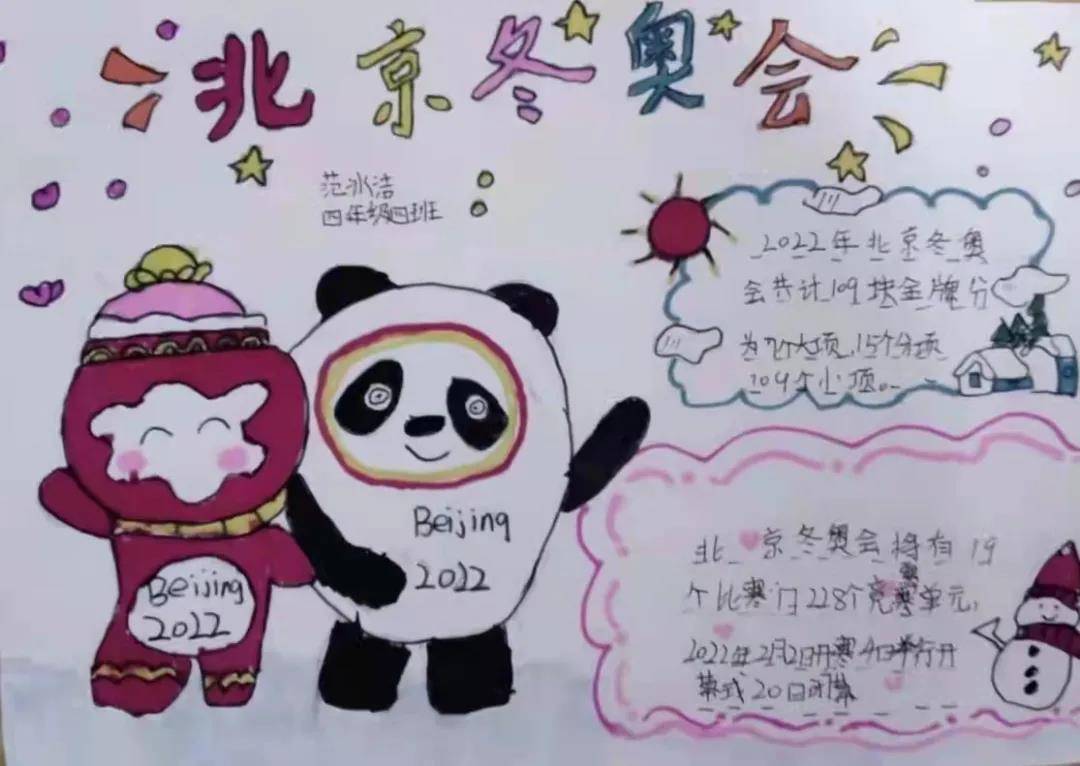 北京冬奥会
范冰洁
四年级四班
2022年北京冬奥
会共计109块金牌分
为7个大项,15个分项
109个小项。
Beijing
2022
Beijing
2022
北京冬奥会将有19
个比赛门228个竞赛单元,
2022年2月2日开赛4日举行开
幕式20日闭幕